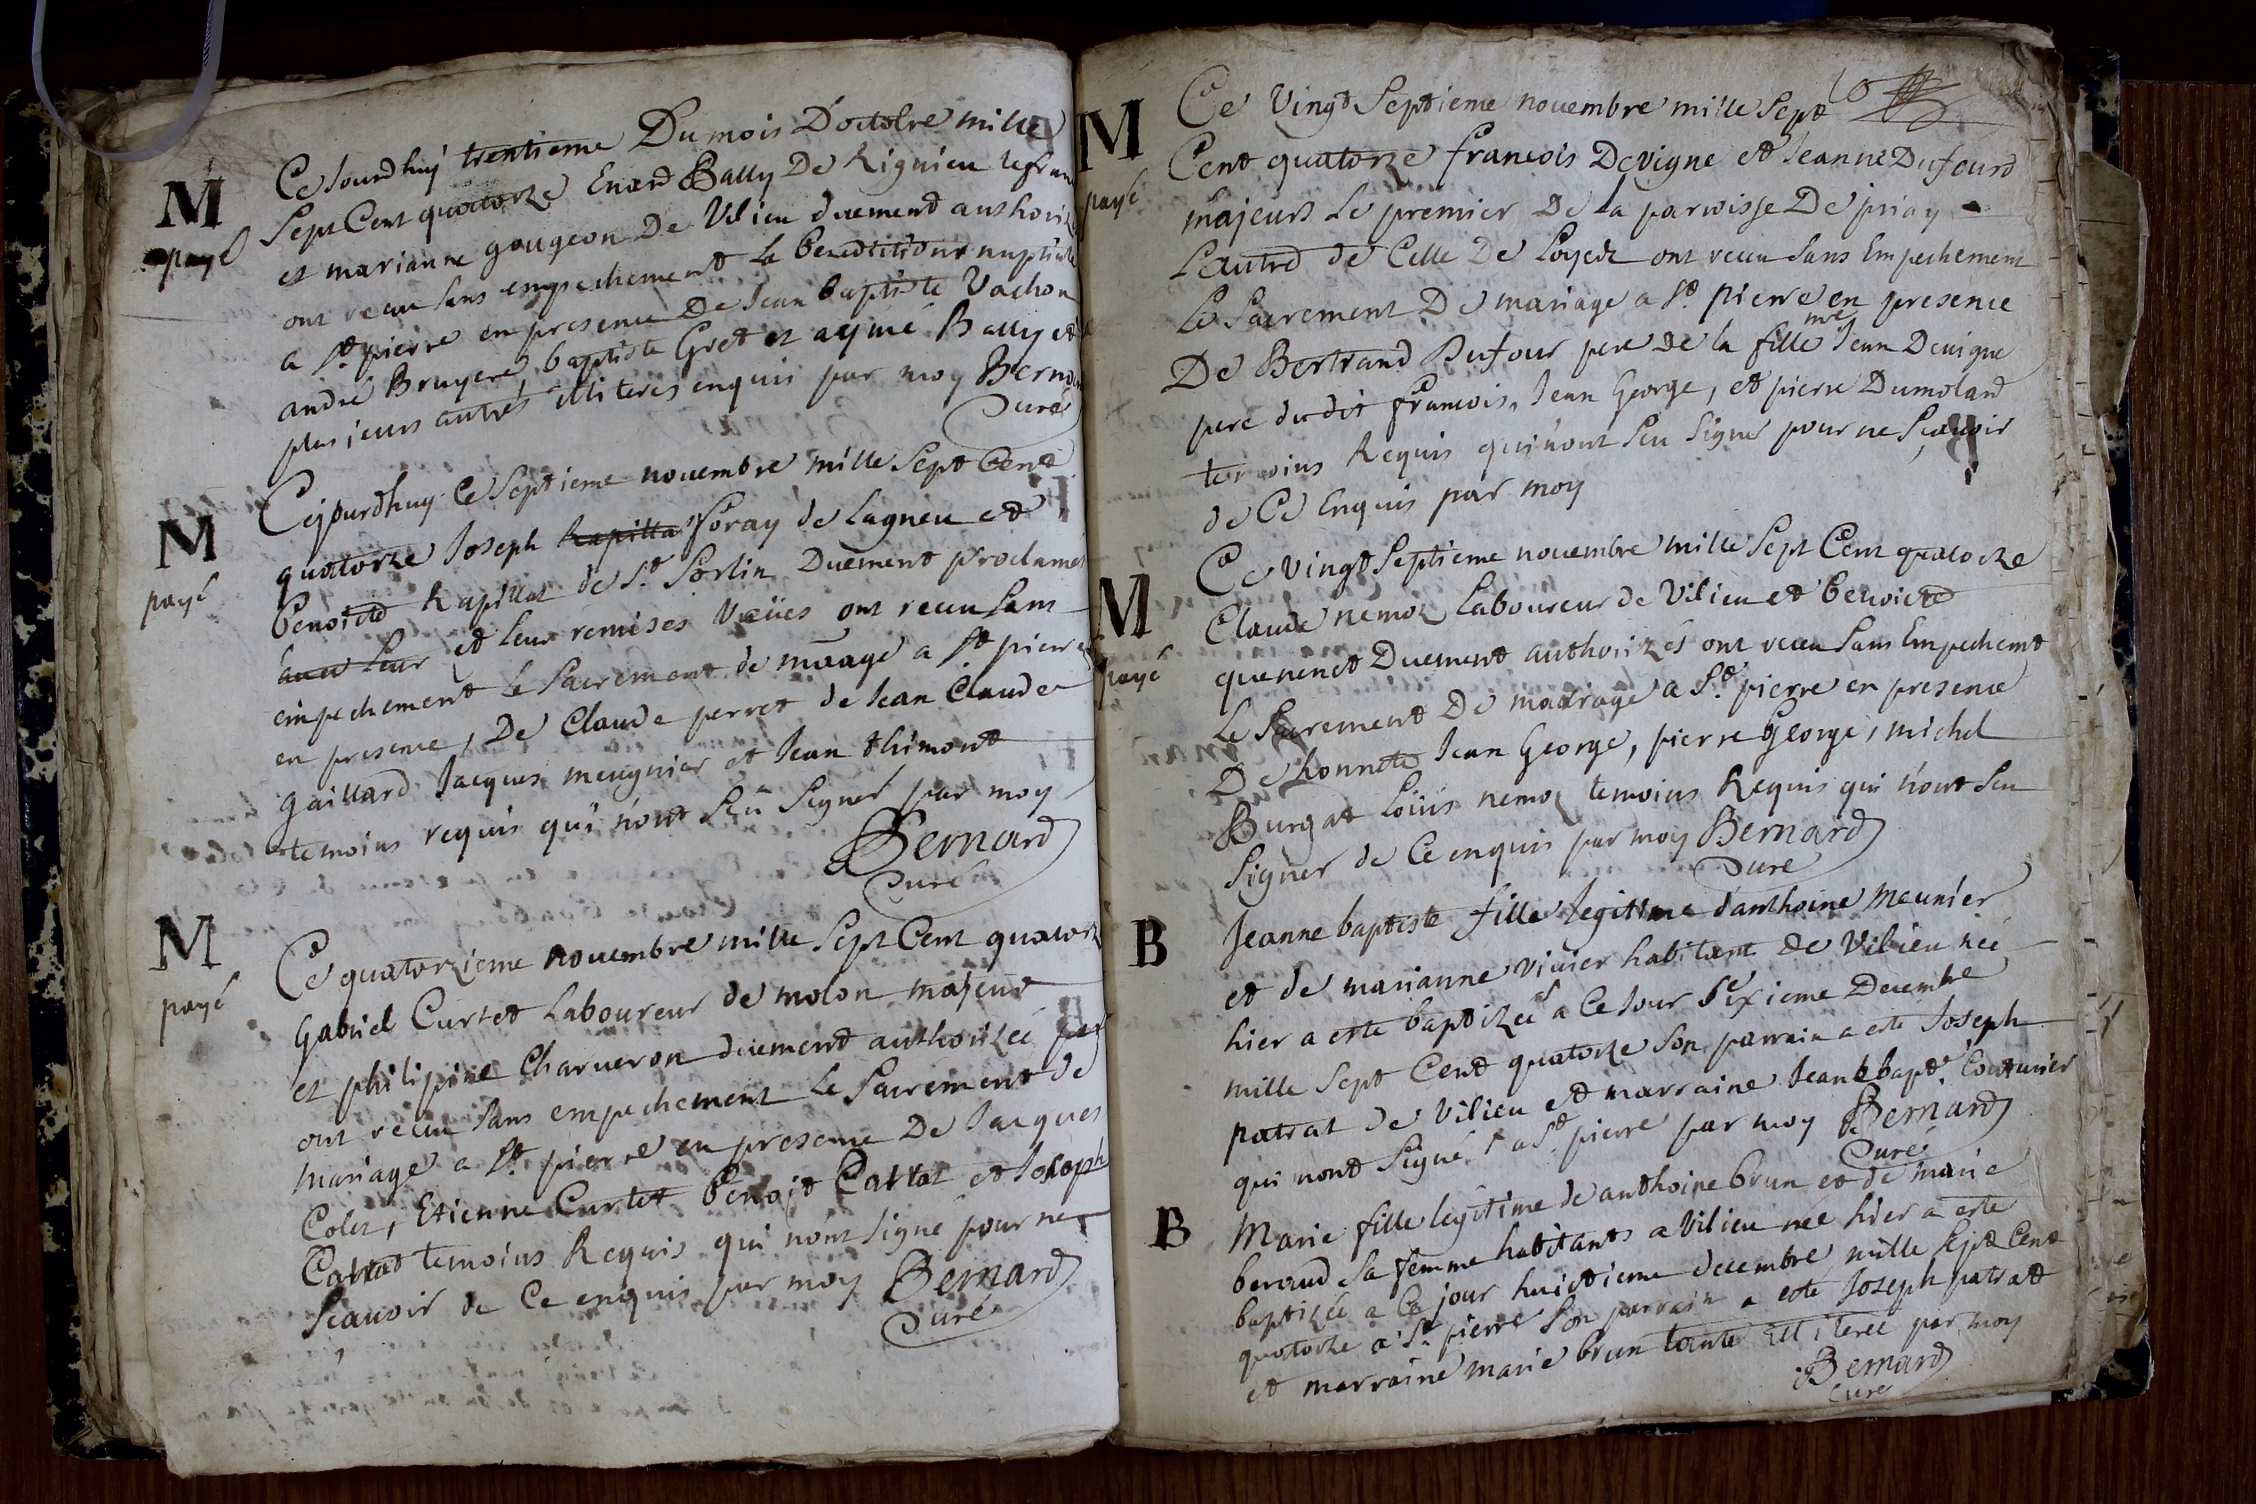 M
payé
Ce Jourdhuy trentieme Du mois D'octobre mille
Sept Cent quatorze Enard Bally De Rignieu le fran
et marianne gougeon De Vilieu duement authoriz
ont receu sans empechement la benediction nuptiale
a St pierre en presence De Jean baptiste Vachon
andré Bruyere, baptiste Gret et aymé Bally et
plusieurs autres illiteres enquis par moy Bernard
Curé
M
payé
Cejourdhuy Ce Septieme nouembre mille Sept Cent
quatorze Joseph Rapilla Foray de Lagnieu et
benoite Rapillat de St Sorlin Duement proclamés
auec leur et leur remises Veües ont receu sans
empechement le Sacrement de mãage a St pierre
en presence, De Claude perret de Jean Claude
gaillard Jacques meugnier et Jean thimont
temoins requis qui n'ont Sçu Signer par moy
Bernard
Curé
M
payé
Ce quatorzieme nouembre mille Sept Cent quatorz
Gabriel Curtet Laboureur de molon majeur
et philipine Charueron duement authorizée par
ont receu sans empechement Le Sacrement de
mariage a St pierre en presence De Jacques
Colet, Etienne Curtet benoit Cattat et Joseph
Cattat temoins Requis qui n'ont signé pour ne
Scauoir de Ce enquis par moy Bernard
Curé
M
payé
Ce Vingt Septieme nouembre mille Sept
Cent quatorze francois Devigne et Jeanne Dufourd
majeurs Le premier De la parroisse De priay
L'autre de Celle De Loyedz ont receu sans Empechement
Le Sacrement De mariage a St pierre en presence
De Bertrand Dufour pere de la fille Jean Deuigne
pere dudit francois, Jean George, et pierre Dumoland
temoins Requis qui n'ont Sçu Signer pour ne Sçauoir
de Ce Enquis par moy
M
payé
Ce Vingt Septieme nouembre mille Sept Cent quatorze
Claude nemoz Laboureur de Vilieu et benoicte
quenenct Duement authorizés ont receu sans Empechemt
Le Sacrement De mariage a St pierre en presence
De honnete Jean George, pierre George, michel
Burgat Loüis nemoz temoins Requis qui n'ont Sçu
Signer de Ce enquis par moy Bernard
Curé
B
Jeanne baptiste fille legitime d'anthoine Meunier
et de marianne viuier habitant de Vilieu née
hier a esté baptizée a Ce Jour Sixieme Decembre
mille Sept Cent quatorze Son parrain a esté Joseph
patrat de Vilieu et marraine Jeanne bapte Couturier
qui n'ont Signé a St pierre par moy Bernard
Curé
B
Marie fille legitime de anthoine brun et de marie
beraud sa femme habitants a Vilieu née hier a esté
baptizée a Ce jour huictieme decembre mille Sept Cent
quatorze a St pierre Son parrain a esté Joseph patrat
et marraine marie brun tante illiterée par moy
Bernard
Curé